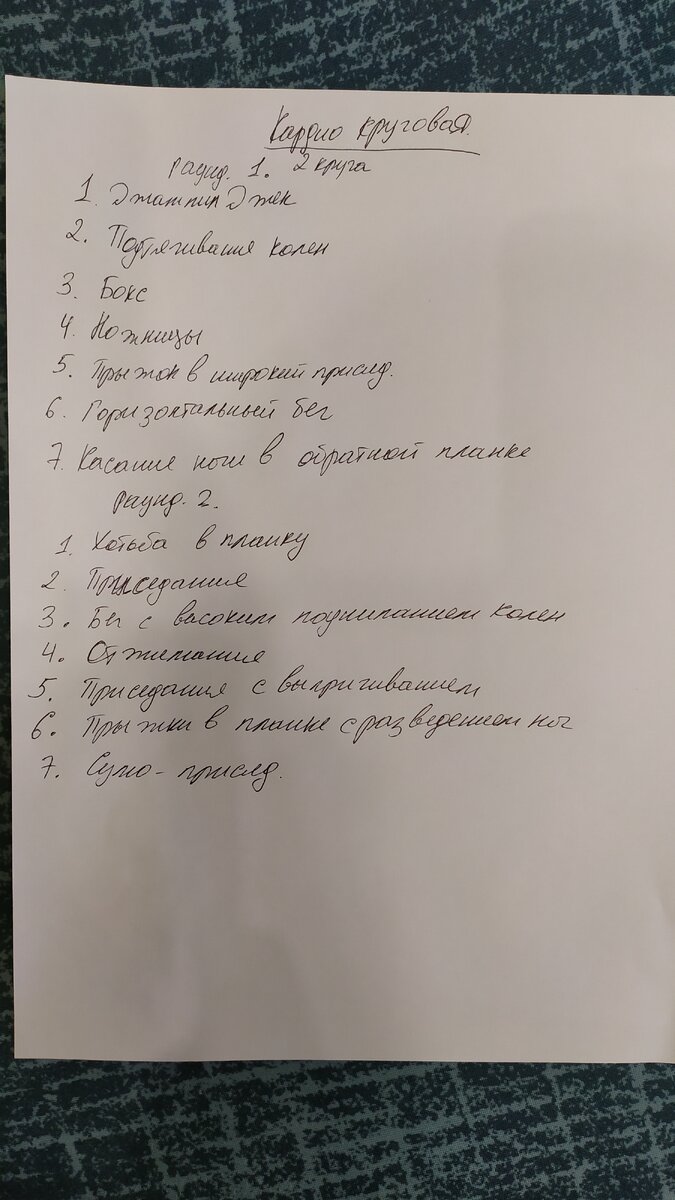 Кардио круговая.
раунд. 1. 2 круга
1. Джампин Джек
2. Подтягивание колен
3. Бокс
4. Ножницы
5. Прыжок в широкий присед.
6. Горизонтальный бег
7. Касание ноги в обратной планке
раунд. 2.
1. Ходьба в планку
2. Приседания
3. Бег с высоким подниманием колен
4. Отжимания
5. Приседания с выпригиванием
6. Прыжки в планке с разведением ног
7. Сумо-присед.